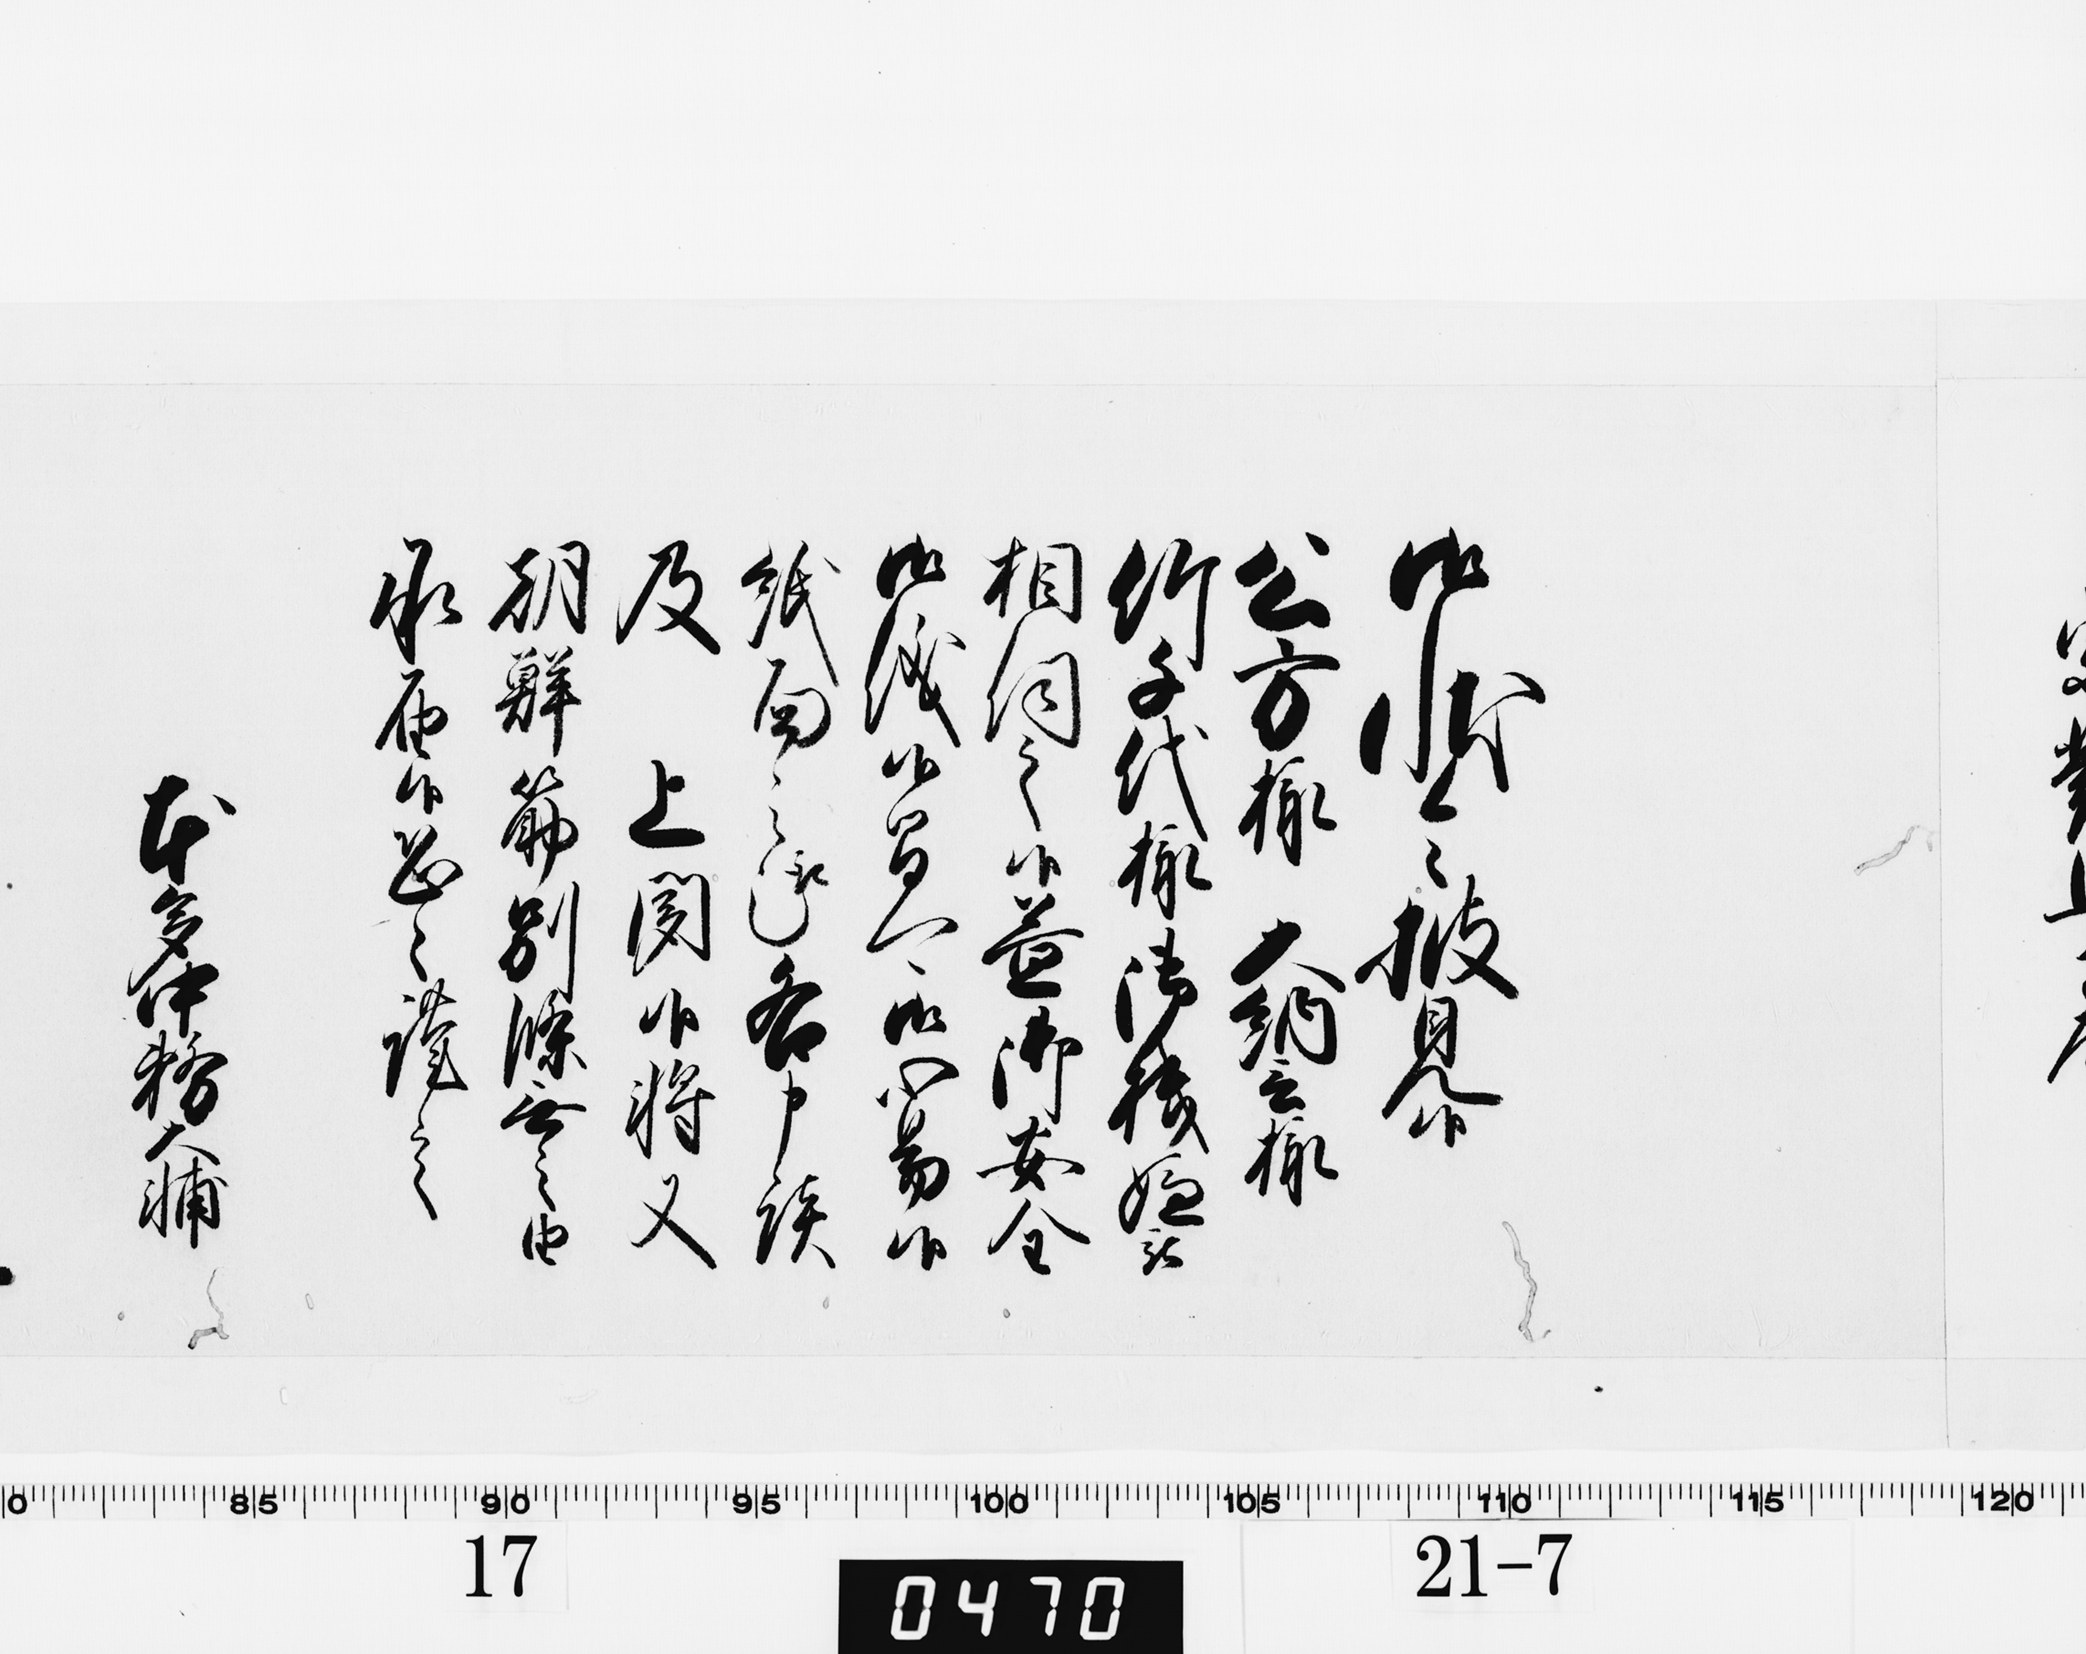 御状令披見候
公方様　大納言様
竹千代様御機嫌被
相伺之候益御安全
御儀候間可御心易候
紙面之趣各申談
及　上聞候将又
朝鮮筋別條無之由
承届候恐々謹言
本多中務大輔
0 85 90 95 100 105 110 115 120
17
0470
21-7